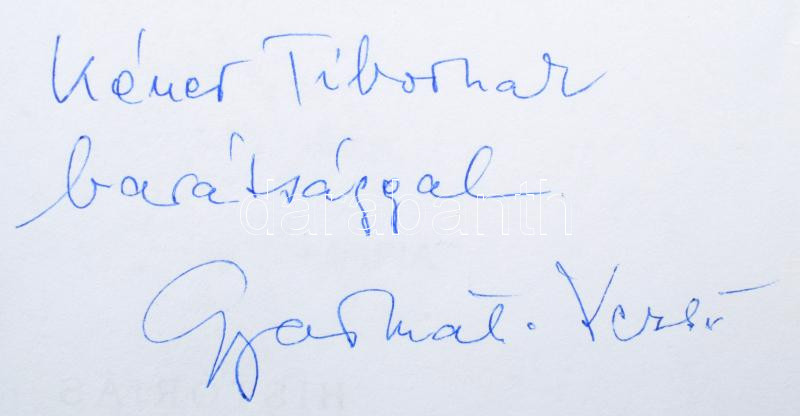 Kéner Tibornak
barátsággal
darabanth
Gyarmati